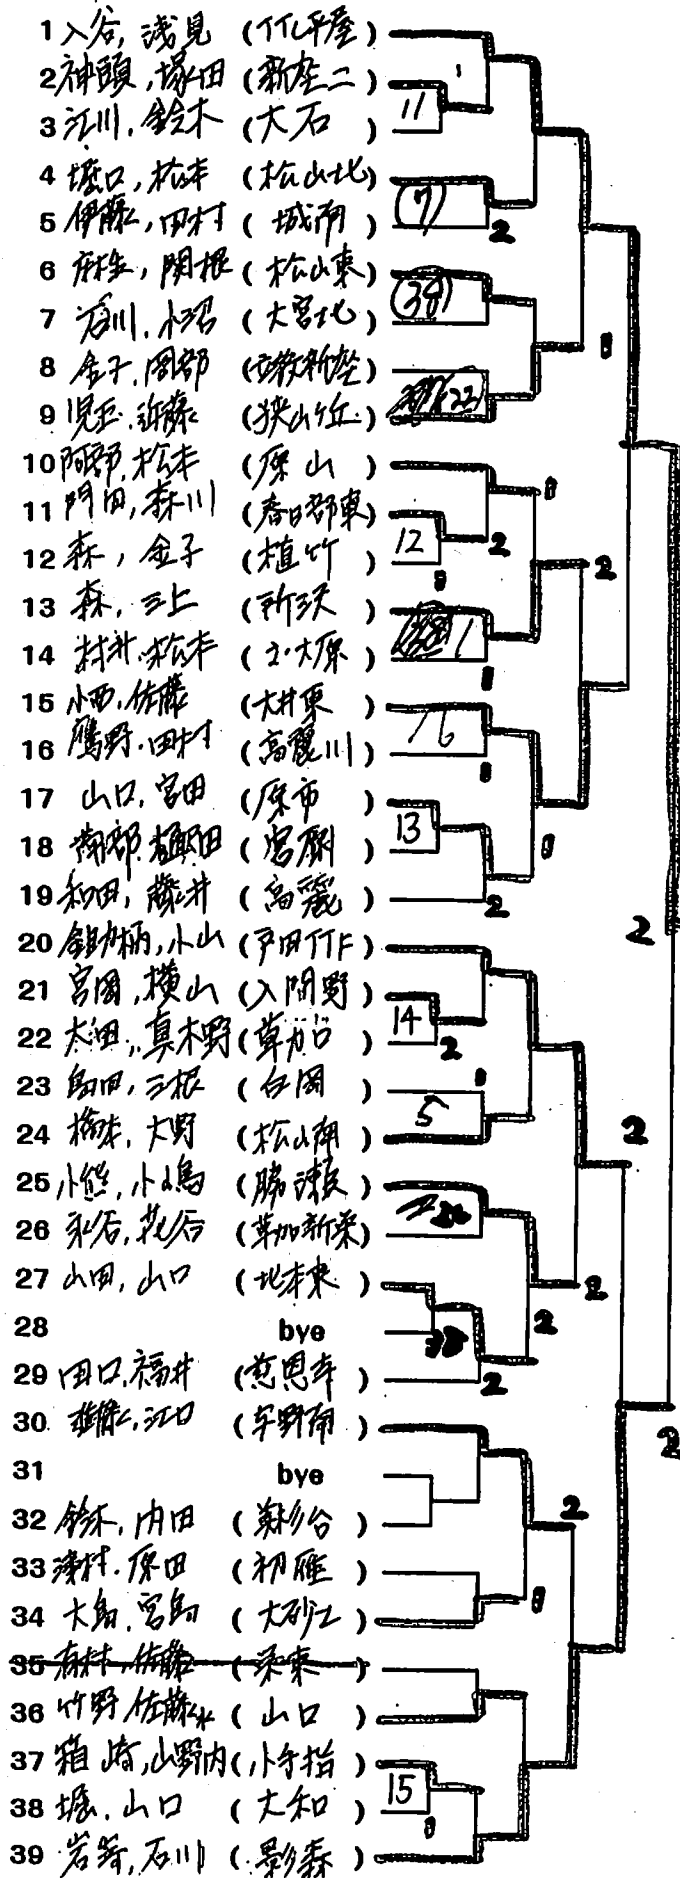 1 入谷, 浅見 (竹平屋)
2 神頭, 塚田 (新座二)
3 江川, 鈴木 (大石)
4 堀口, 松本 (松山北)
5 伊藤, 田村 (城南)
6 麻生, 関根 (松山東)
7 石川, 小沼 (大宮北)
8 金子, 岡部 (立教新座)
9 児玉, 近藤 (狭山ヶ丘)
10 阿部, 松本 (原山)
11 門田, 森川 (春日部東)
12 森, 金子 (植竹)
13 森, 三上 (所沢)
14 村井, 松本 (土・大原)
15 小西, 佐藤 (大井東)
16 鷹野, 田村 (高麗川)
17 山口, 宮田 (原市)
18 南部, 植田 (宮原)
19 和田, 藤井 (高麗)
20 小山 (戸田)
21 宮岡, 横山 (入間野)
22 太田, 真木野 (草加)
23 島田, 三根 (白岡)
24 橋本, 大野 (松山南)
25 小熊, 小嶋 (勝瀬)
26 永谷, 花谷 (草加新栄)
27 山田, 山口 (北本東)
28 bye
29 田口, 福井 (慈恩寺)
30 江口 (与野南)
31 bye
32 鈴木, 内田 (美杉台)
33 津村, 原田 (初雁)
34 大島, 宮島 (大砂土)
35 有村, 佐藤 (栄東)
36 竹野, 佐藤 (山口)
37 箱崎, 山野内 (小手指)
38 堀, 山口 (大和)
39 岩等, 石川 (影森)
11
7
38
22
12
1
16
13
14
5
26
15
2